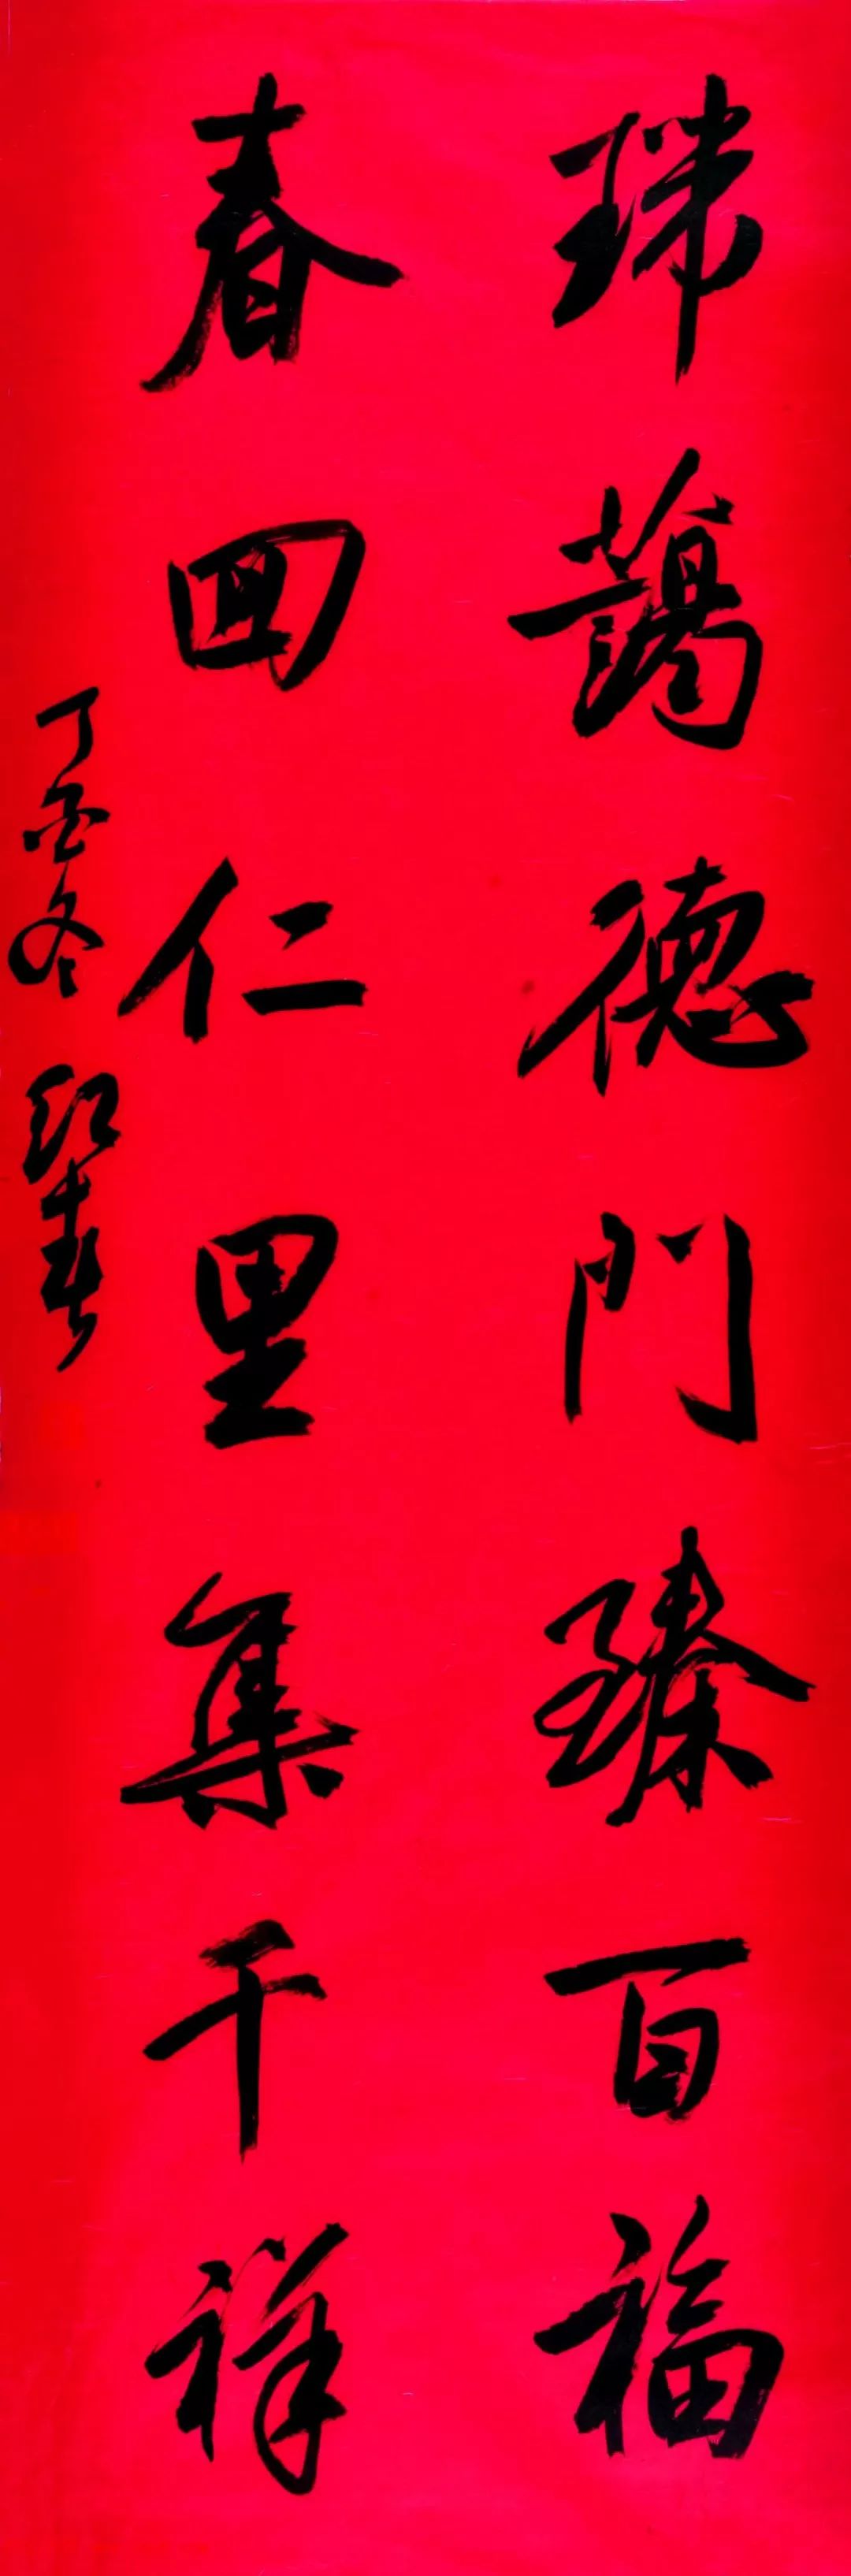 瑞蔼德門臻百福
春回仁里集千祥
丁酉冬 红春